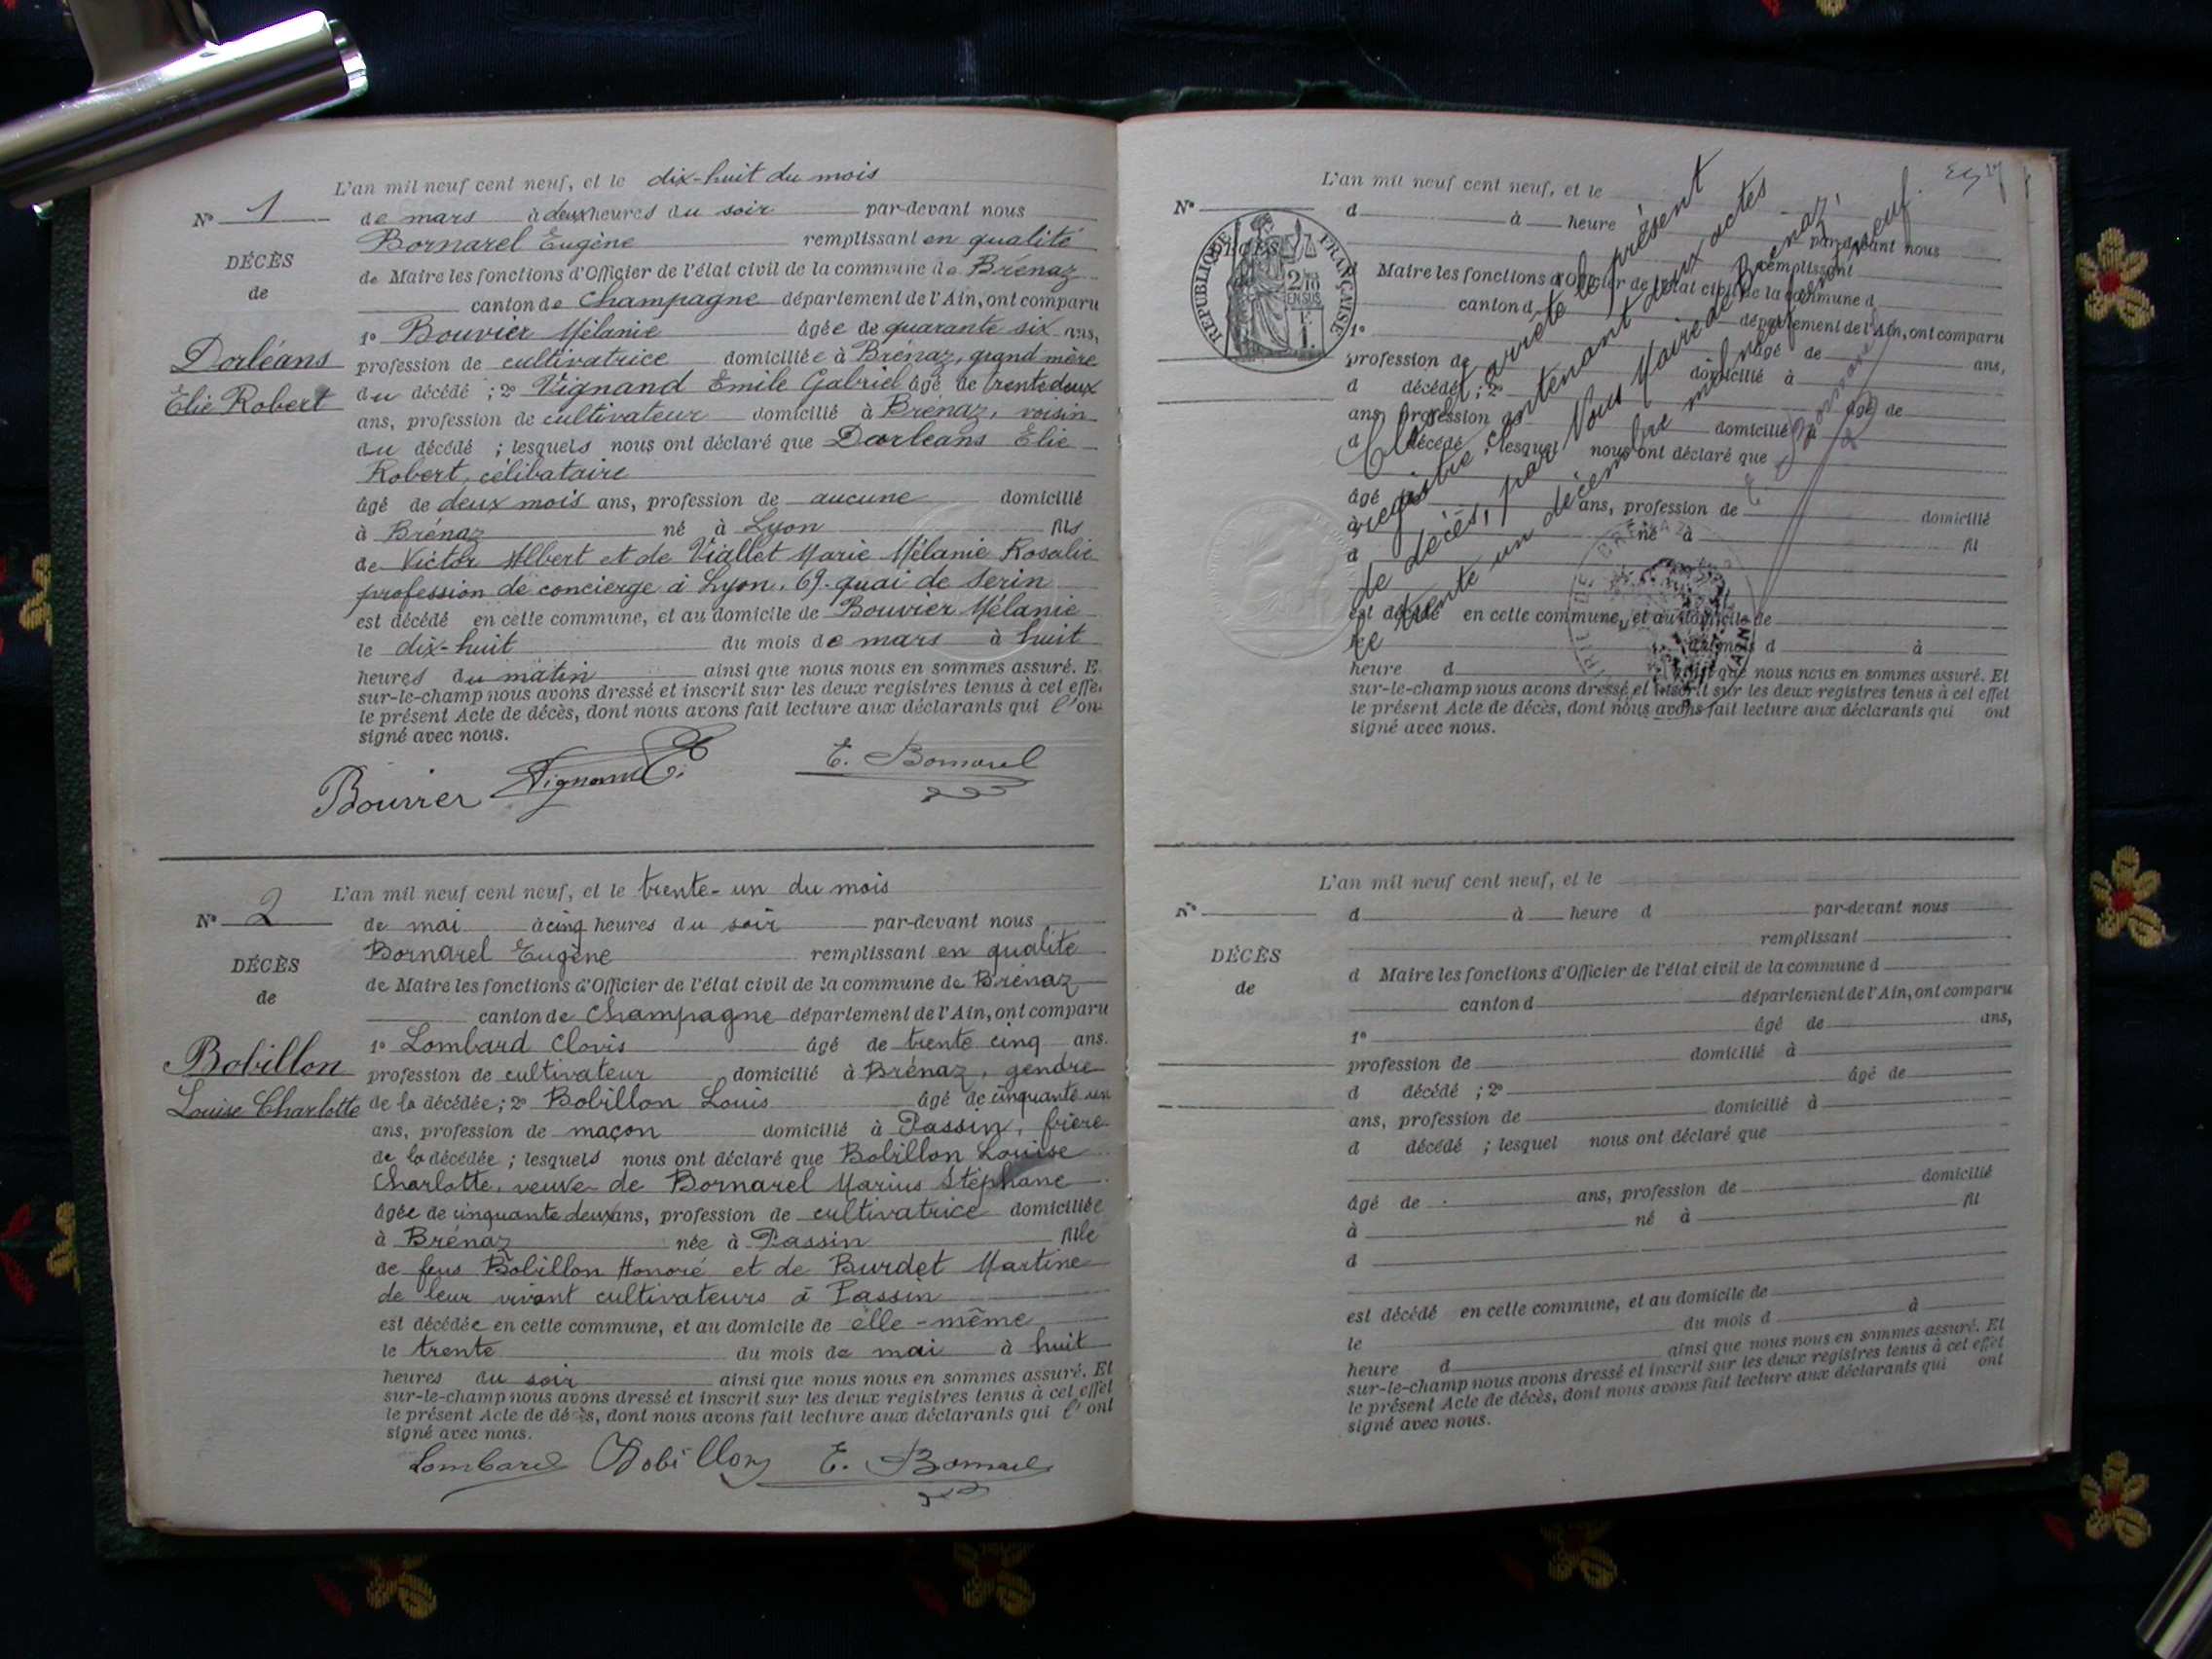 L'an mil neuf cent neuf, et le dix-huit du mois
N° 1 de mars à deux heures du soir par-devant nous
Bornarel Eugène remplissant en qualité
DÉCÈS
de Maire les fonctions d'Officier de l'état civil de la commune de Brénaz
de
canton de Champagne département de l'Ain, ont comparu
1° Bouvier Mélanie âgée de quarante six ans,
Dorléans
profession de cultivatrice domiciliée à Brénaz, grand mère
Elie Robert
du décédé ; 2° Vignand Emile Gabriel âgé de trente deux
ans, profession de cultivateur domicilié à Brénaz, voisin
du décédé ; lesquels nous ont déclaré que Dorleans Elie
Robert, célibataire
âgé de deux mois ans, profession de aucune domicilié
à Brénaz né à Lyon fils
de Victor Albert et de Viallet Marie Mélanie Rosalie
profession de concierge à Lyon, 69 quai de Serin
est décédé en cette commune, et au domicile de Bouvier Mélanie
le dix-huit du mois de mars à huit
heures du matin ainsi que nous nous en sommes assuré. E
sur-le-champ nous avons dressé et inscrit sur les deux registres tenus à cet effe
le présent Acte de décès, dont nous avons fait lecture aux déclarants qui l'on
signé avec nous.
Bouvier Vignand E. E. Bornarel
L'an mil neuf cent neuf, et le trente-un du mois
N° 2 de mai à cinq heures du soir par-devant nous
Bornarel Eugène remplissant en qualité
DÉCÈS
de Maire les fonctions d'Officier de l'état civil de la commune de Brénaz
de
canton de Champagne département de l'Ain, ont comparu
1° Lombard Clovis âgé de trente cinq ans.
Bobillon
profession de cultivateur domicilié à Brénaz, gendre
Louise Charlotte
de la décédée ; 2° Bobillon Louis âgé de cinquante un
ans, profession de maçon domicilié à Passin, frère
de la décédée ; lesquels nous ont déclaré que Bobillon Louise
Charlotte, veuve de Bornarel Marius Stéphane
âgée de cinquante deux ans, profession de cultivatrice domiciliée
à Brénaz née à Passin fille
de feus Bobillon Honoré et de Burdet Martine
de leur vivant cultivateurs à Passin
est décédée en cette commune, et au domicile de elle-même
le trente du mois de mai à huit
heures du soir ainsi que nous nous en sommes assuré. Et
sur-le-champ nous avons dressé et inscrit sur les deux registres tenus à cet effet
le présent Acte de décès, dont nous avons fait lecture aux déclarants qui l'ont
signé avec nous.
Lombard Bobillon E. Bornarel
L'an mil neuf cent neuf, et le
N° d à heure par-devant nous
remplissant
d Maire les fonctions d'Officier de l'état civil de la commune d
canton d département de l'Ain, ont comparu
1° âgé de ans,
profession de domicilié à
d décédé ; 2° âgé de
ans, profession domicilié à
d décédé ; lesquel nous ont déclaré que
âgé ans, profession de domicilié
à né à fil
d
est décédé en cette commune, et au domicile de
le du mois d à
heure d ainsi que nous nous en sommes assuré. Et
sur-le-champ nous avons dressé et inscrit sur les deux registres tenus à cet effet
le présent Acte de décès, dont nous avons fait lecture aux déclarants qui ont
signé avec nous.
RÉPUBLIQUE FRANÇAISE
2/10 EN SUS
Clos et arrêté le présent
registre contenant deux actes
de décès, par Nous Maire de Brénaz,
le trente un décembre mil neuf cent neuf.
E. Bornarel
L'an mil neuf cent neuf, et le
N° d à heure d par-devant nous
remplissant
DÉCÈS
d Maire les fonctions d'Officier de l'état civil de la commune d
de
canton d département de l'Ain, ont comparu
1° âgé de ans,
profession de domicilié à
d décédé ; 2° âgé de
ans, profession de domicilié à
d décédé ; lesquel nous ont déclaré que
âgé de ans, profession de domicilié
à né à fil
d
est décédé en cette commune, et au domicile de
le du mois d à
heure d ainsi que nous nous en sommes assuré. Et
sur-le-champ nous avons dressé et inscrit sur les deux registres tenus à cet effet
le présent Acte de décès, dont nous avons fait lecture aux déclarants qui ont
signé avec nous.